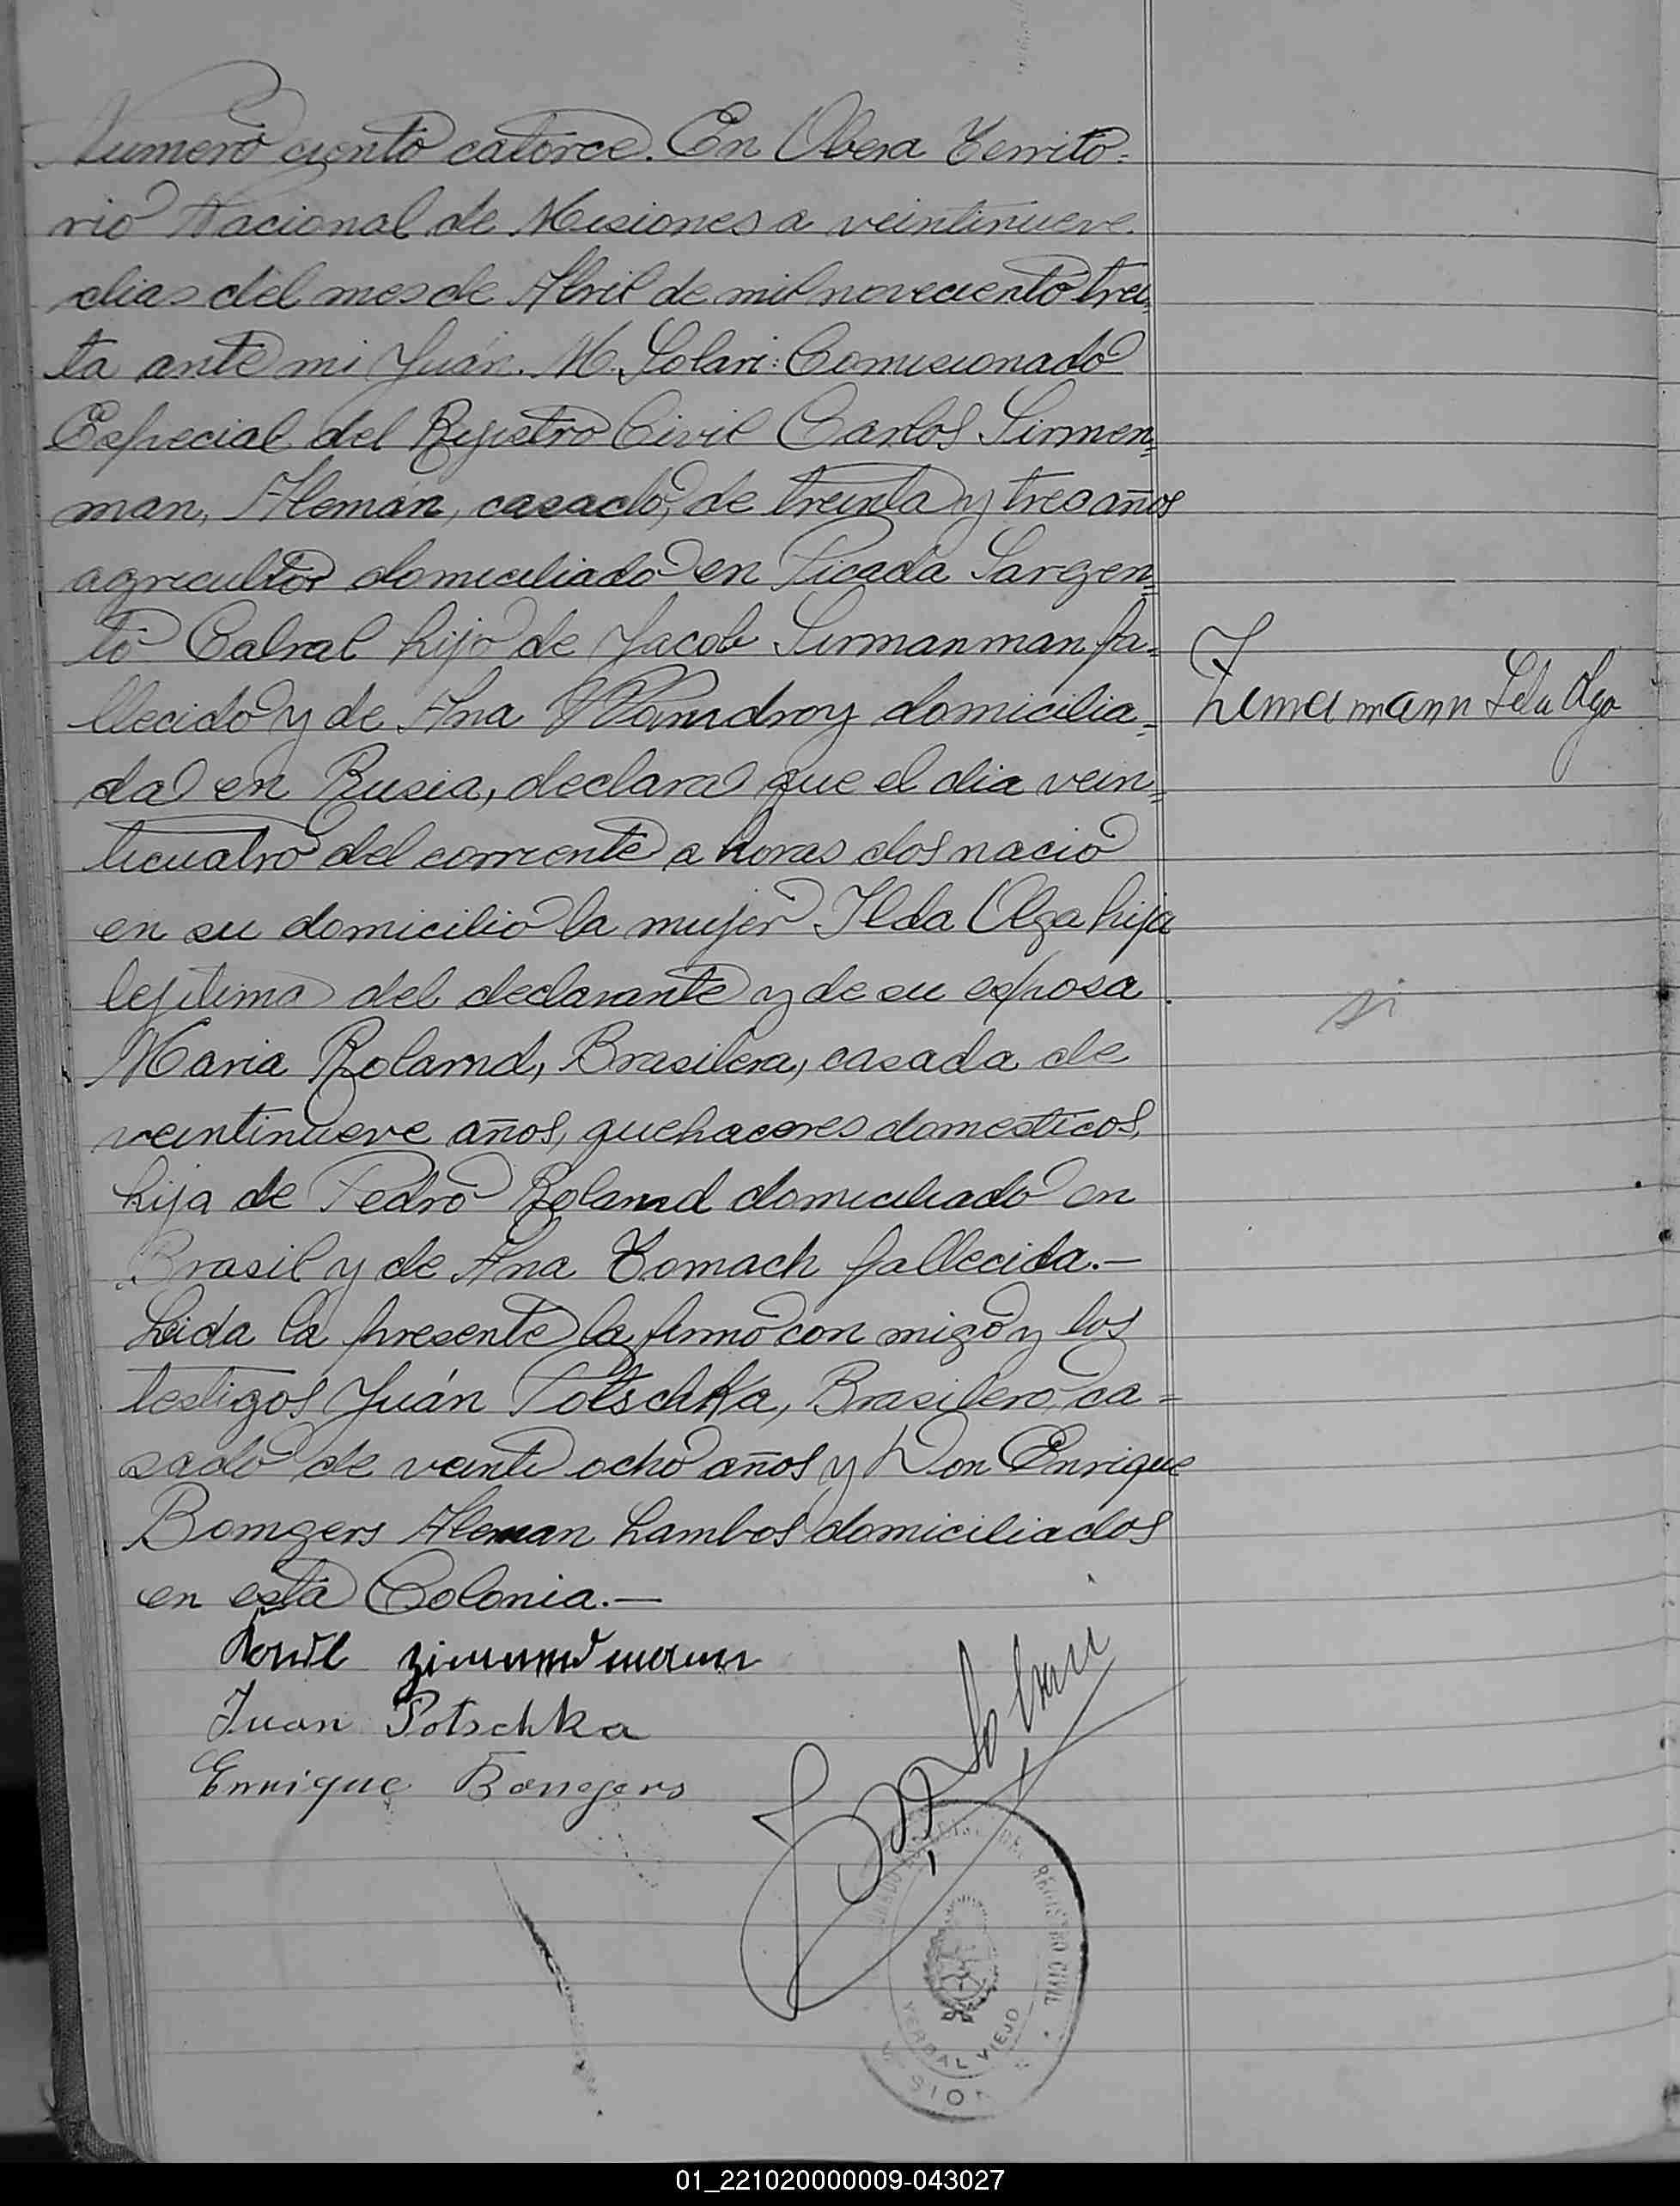 Numero ciento catorce. En Obera Territo=
rio Nacional de Misiones a veintinueve
dias del mes de Abril de mil noveciento trein
ta ante mi Juán. M. Solari: Comisionado
Especial del Rejistro Civil Carlos Sirmen=
man, Alemán, casado, de treinta y tres años
agricultor domiciliado en Picada Sargen=
to Cabral hijo de Jacob Sirmanman fa=
llecido y de Ana domicilia=
da en Rusia, declara que el dia vein=
ticuatro del corriente a horas dos nació
en su domicilio la mujer Ilda Olga hija
lejitima del declarante y de su esposa
Maria Rolamd, Brasilera, casada de
veintinueve años, quehaceres domesticos,
hija de Pedro Rolamd domiciliado en
Brasil y de Ana Tomach fallecida.—
Leida la presente la firmó con migo y los
testigos Juán Potschka, Brasilero, ca=
sado de veinti ocho años y Don Enrique
Bomgers Aleman hambos domiciliados
en esta Colonia.—
Juan Potschka
Enrique Bongers
Solari
REGISTRO CIVIL
YERBAL VIEJO
Zimermann Ilda Olga
si
01_221020000009-043027